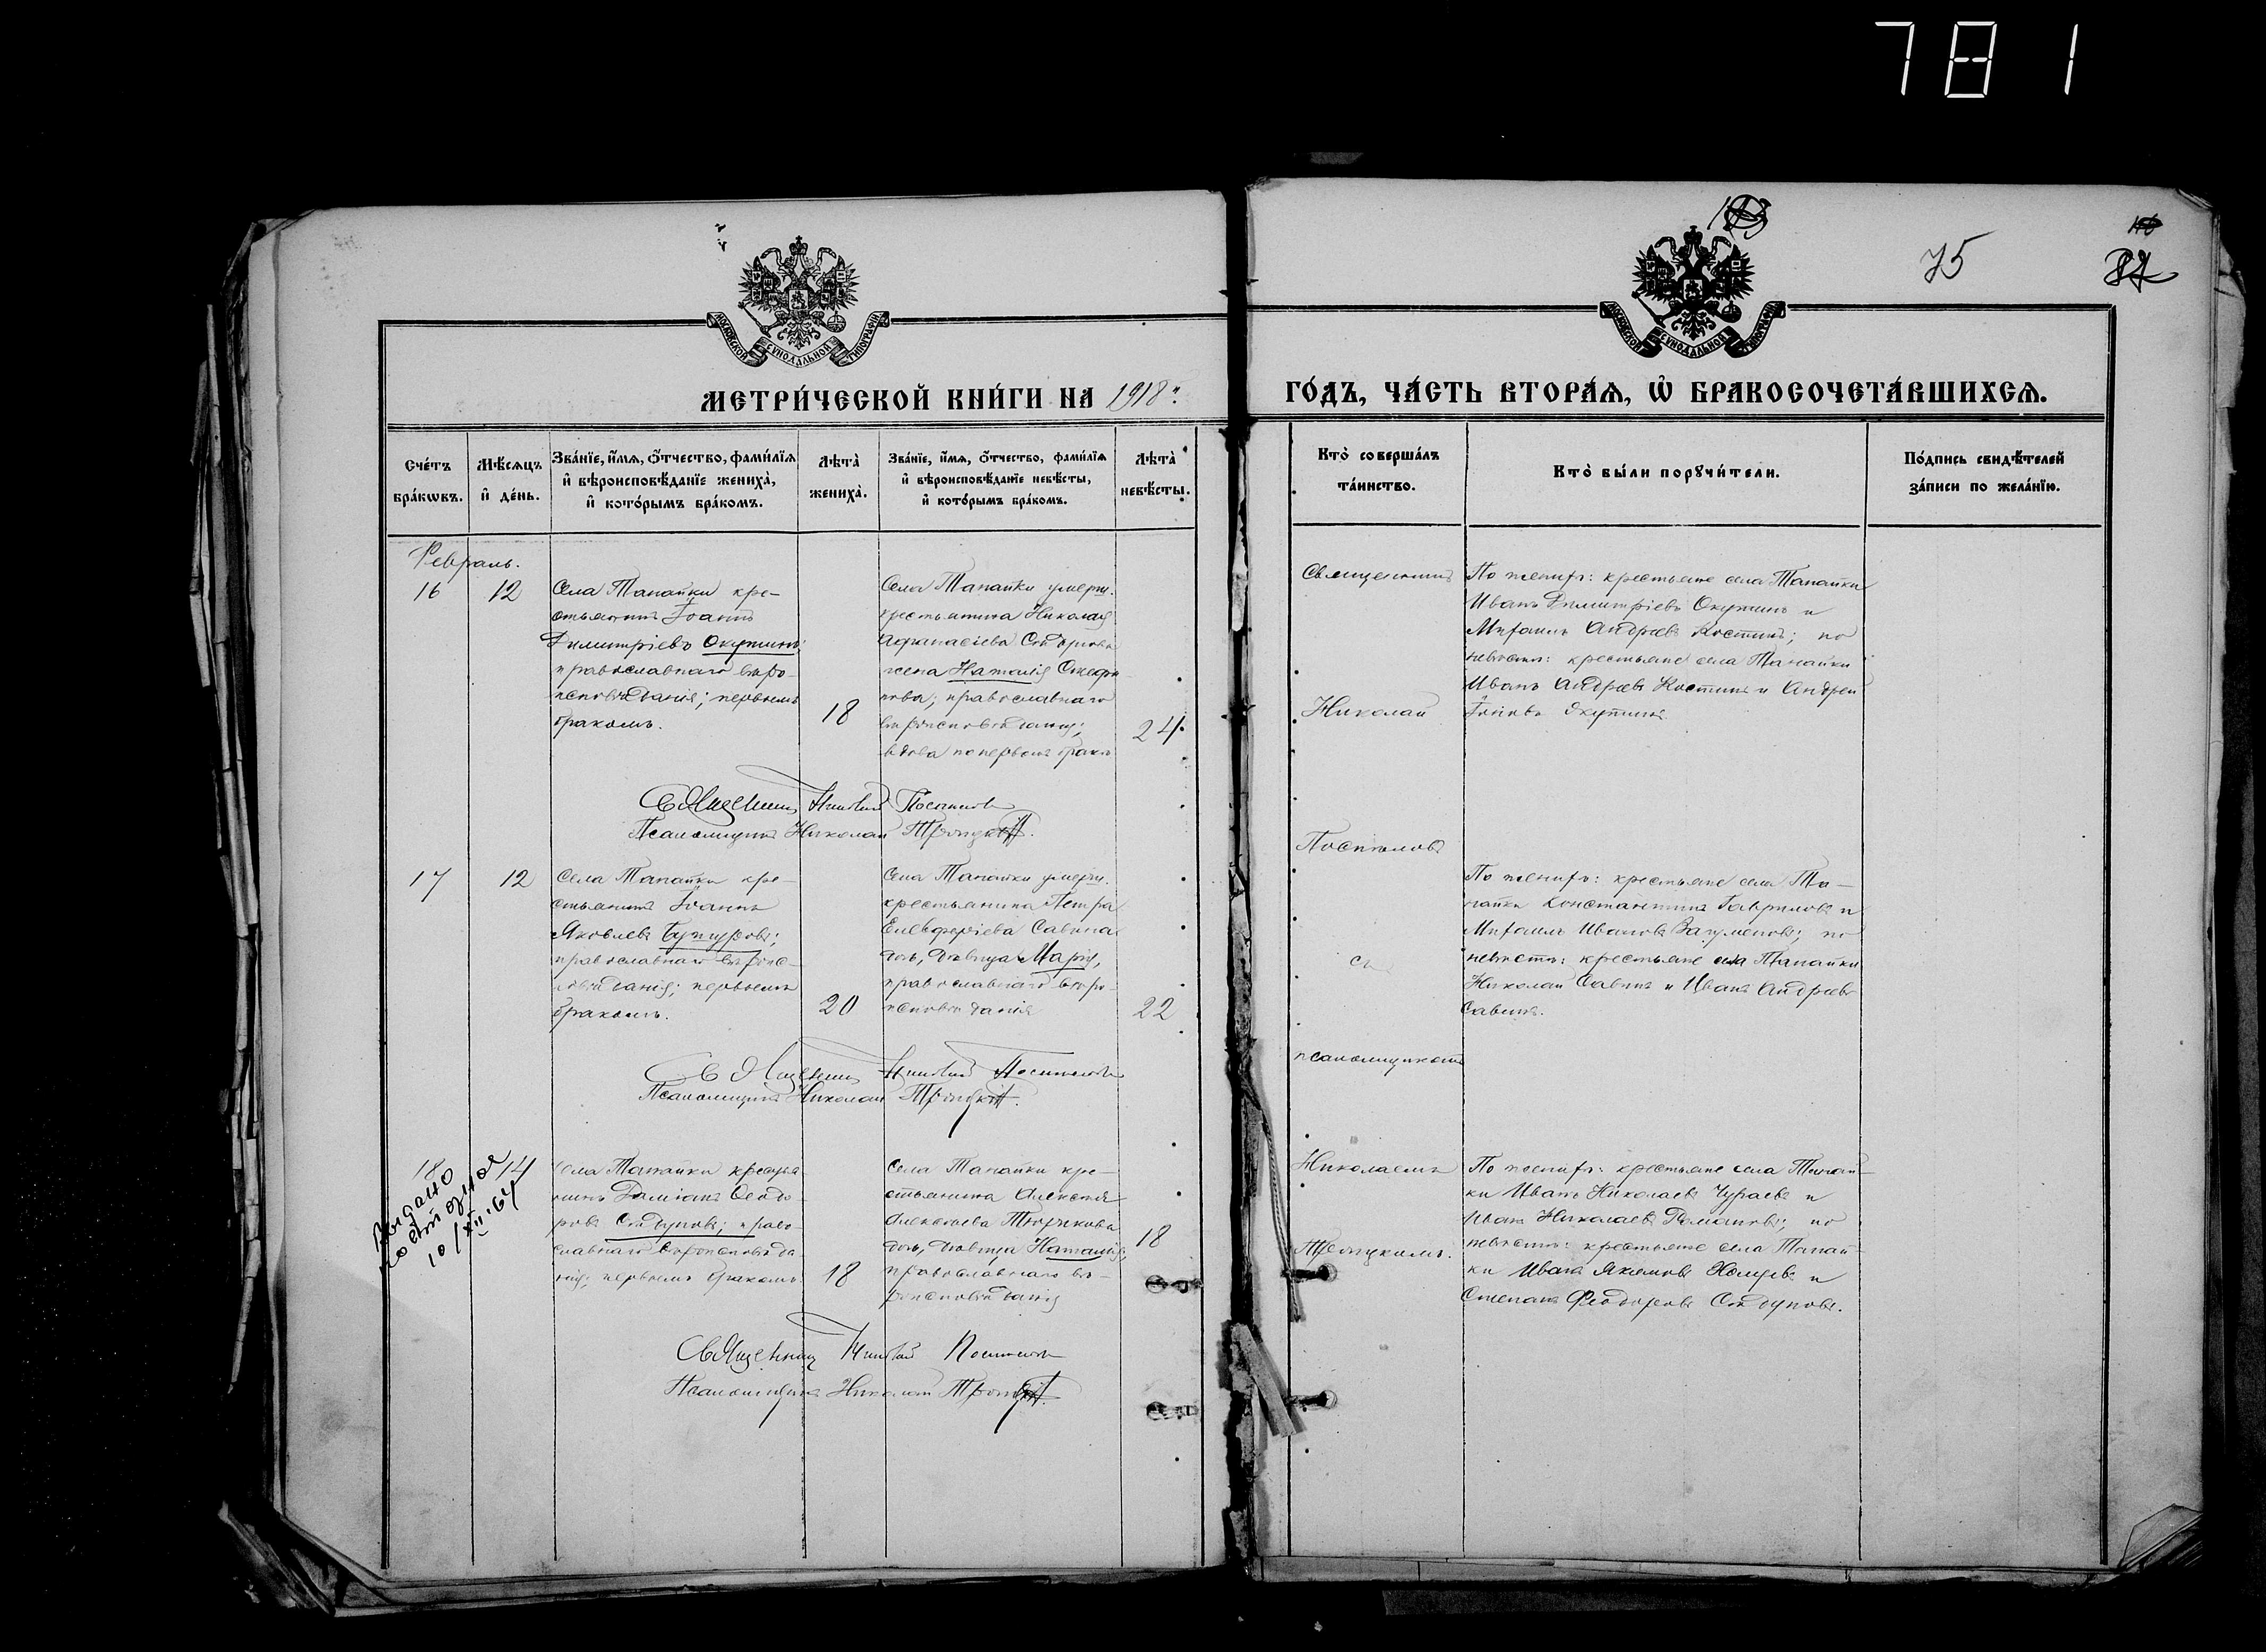 781
75
МОСКОВСКОЙ СѴНОДАЛЬНОЙ ТИПОГРАФІИ
МОСКОВСКОЙ СѴНОДАЛЬНОЙ ТИПОГРАФІИ
МЕТРИ́ЧЕСКОЙ КНИ́ГИ НА 1918
ГО́ДЪ, ЧА́СТЬ ВТОРА́Ѧ, Ѡ҆ БРАКОСОЧЕТА́ВШИХСѦ.
Сче́тъ бра́кѡвъ.
Мѣ́сѧцъ и҆ де́нь.
Зва́нїе, и҆́мѧ, ѻ҆́тчество, фами́лїѧ
и҆ вѣроисповѣ́данїе жениха̀,
и҆ кото́рымъ бра́комъ.
Лѣта̀ жениха̀.
Зва́нїе, и҆́мѧ, ѻ҆́тчество, фами́лїѧ
и҆ вѣроисповѣ́данїе невѣ́сты,
и҆ кото́рымъ бра́комъ.
Лѣта̀ невѣ́сты.
Кто̀ соверша́лъ
та́инство.
Кто̀ бы́ли порꙋчи́тели.
По́дпись свидѣ́телей
за́писи по жела́нїю.
Февраль.
16
12
Села Танайки кре-
стьянинъ Іоаннъ
Димитріевъ Окунинъ
православнаго вѣро-
исповѣданія; первымъ
бракомъ.
18
Села Танайки умерш.
крестьянина Николая
жена Наталія
православнаго
вѣроисповѣданія;
вдова по первомъ бракѣ
24
Священникъ
Николай
Поспѣловъ
съ
псаломщикомъ
Николаемъ
Троицкимъ.
По женихѣ: крестьяне села Танайки
Иванъ Димитріевъ Окунинъ и
Михаилъ Андреевъ Костинъ; по
невѣстѣ: крестьяне села Танайки
Иванъ Андреевъ Костинъ и Андрей
Священникъ Николай Поспѣловъ
Псаломщикъ Николай Троицкій.
17
12
Села Танайки кре-
стьянинъ Іоаннъ
Яковлевъ
православнаго вѣроис-
повѣданія; первымъ
бракомъ.
20
Села Танайки умерш.
крестьянина Петра
Елевферіева Савина
дочь, дѣвица Марія,
православнаго вѣро-
исповѣданія
22
По женихѣ: крестьяне села Та-
найки Константинъ Гавриловъ и
Михаилъ Ивановъ; по
невѣстѣ: крестьяне села Танайки
Николай Савинъ и Иванъ Андреевъ
Савинъ.
Священникъ Николай Поспѣловъ
Псаломщикъ Николай Троицкій.
18
14
Выдано
10/XII-64
Села Танайки крестья
нинъ Даміанъ Ѳеодо-
ровъ право-
славнаго вѣроисповѣда-
нія; первымъ бракомъ.
18
Села Танайки кре-
стьянина Алексѣя
дочь, дѣвица Наталія,
православнаго вѣ-
роисповѣданія
18
По женихѣ: крестьяне села Танай-
ки Иванъ Николаевъ Чураевъ и
Иванъ Николаевъ Романовъ; по
невѣстѣ: крестьяне села Танай-
ки Иванъ Якимовъ и
Степанъ Феодоровъ
Священникъ Николай Поспѣловъ
Псаломщикъ Николай Троицкій.